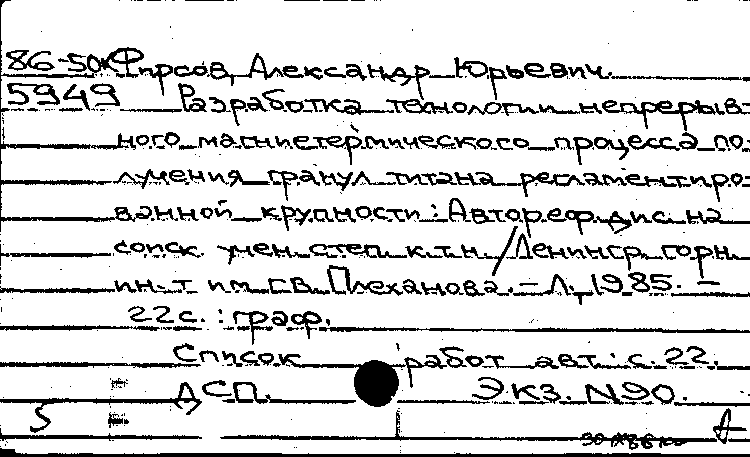 86-50к Фирсов, Александр Юрьевич.
5949 Разработка технологии непрерыв-
ного магниетермического процесса по-
лучения гранул титана регламентиро-
ванной крупности: Автореф. дис. на
соиск. учен. степ. к.т.н. / Ленингр. горн.
ин-т им. Г.В. Плеханова. - Л., 1985. -
22 с. : граф.
Список работ авт.: с. 22.
ДСП. Экз. N90.
5